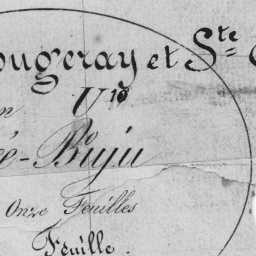 ougeray et Ste
V is
é-Buju
Onze Feuilles
Feuille.